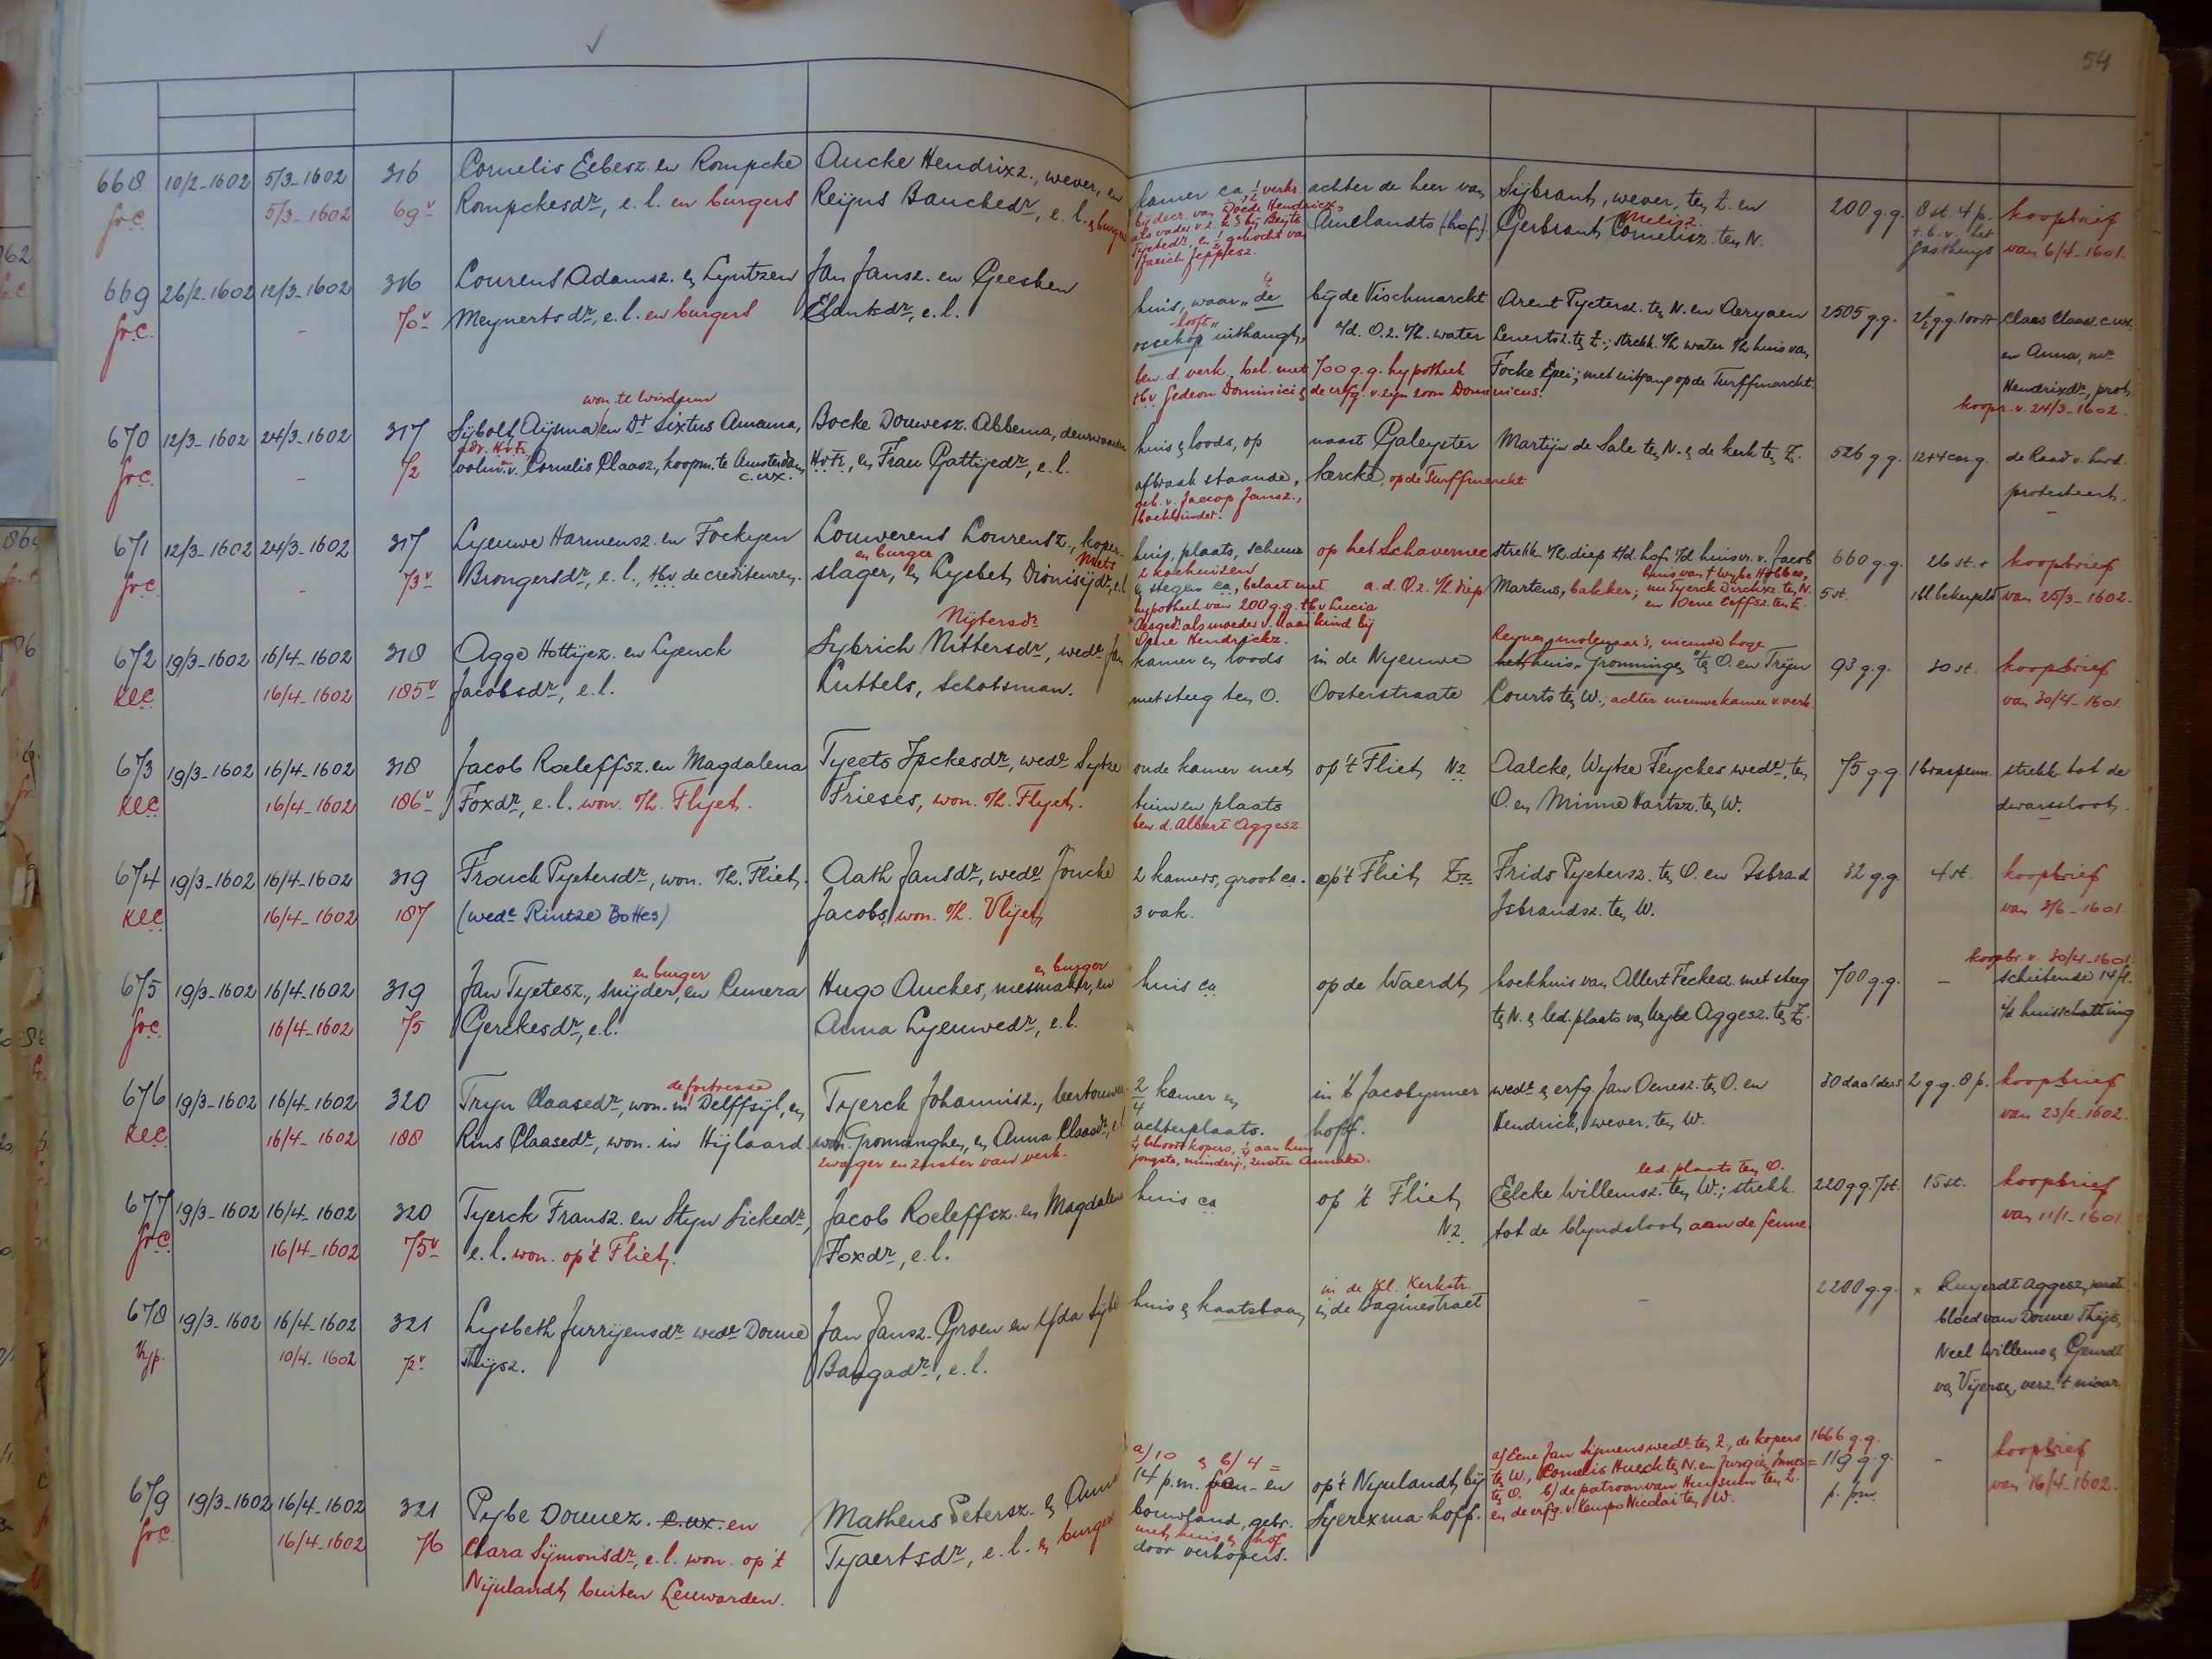 54
668 10/2-1602 5/3-1602 316 Cornelis Eebesz. en Rompcke Aucke Hendrixz., wever, en kamer ca, ½ verkr. achter de heer van Sijbrant, wever, ten Z. en 200 g.g. 8 st. 4 p. koopbrief
fr.c. 5/3-1602 69v Rompckesdr, e.l. en burgers Reijns Bauckedr, e.l. & burgers bij decr. van Doede Hendricx, Amelandts (hof.) Gerbrant Cornelisz. ten N. t.b.v. het van 6/4-1601.
Melisz.
als vader v.z. k. bij Beijts
Tyebedr, en ½ gekocht van
Jarich Jeppesz.
Gasthuys
669 26/2-1602 12/3-1602 316 Lourens Adamsz. & Lyntzen Jan Jansz. en Geesken huis, waar "de bij de Vischmarckt Arent Pyetersz. ten N. en Aeryaen 2505 g.g. 2½ g.g. 1 oort Claes Claasz. c.ux.
fr.c. - 70v Meynerts dr, e.l. en burgers Elantsdr, e.l. ossekop" uithangt, a/d. O.z. v/h. water Lenertsz. ten Z.; strekk. v/h water t/h huis van en Anna, mr
-hooft"
bew. d. verk., bel. met 700 g.g. hypotheek Focke Epei; met uitgang op de Turffmarckt. Hendrixdr, prot.
t.b.v. Gedeon Dominici & de erfg. v. zijn zoon Dominicus. koopr. v. 24/3-1602
won. te Wirdum
670 12/3-1602 24/3-1602 317 Sijbolt Aijsma en Dr Sixtus Amama, Bocke Douwesz. Abbema, deurwaarder huis & loods, op naast Galeyster Martijn de Sale ten N. & de kerk ten Z. 526 g.g. 12+4 car. g. de Raad v. Lwd.
fr.c. - 72 adv. H.v.Fr. volm. v. Cornelis Claasz., koopm. te Amsterdam, c.ux. H.v.Fr., en Frau Gattijedr, e.l. afbraak staande, kercke, op de Turffmerckt protesteert.
geb. v. Jacop Jansz.,
boeckbinder.
671 12/3-1602 24/3-1602 317 Lyeuwe Harmensz. en Fockyen Louwerens Lourensz., koper- huis, plaats, schuur op het Schavernee strekk. v/h. diep t/d. hof v/d huisvr. v. Jacob 660 g.g. 26 st. + koopbrief
fr.c. - 73v Brongersdr, e.l., t.b.v. de crediteuren. en burger slager, en Lysbet Dionisijdr, e.l. 2 koehuizen & stegen ca, belast met a.d. O.z. v/h. diep Martens, bakker; nu Tyerck Dirckxz. ten N. 5 st. 1 bl. bekeyeld van 25/3-1602.
Mets
huis van † Wybe Hobbes,
en Oene Eeffsz. ten Z.
hypotheek van 200 g.g. t.b.v. Lucia
Aesgedr als moeder v. haar kind bij
Oene Hendrickz.
Nijtersdr
672 19/3-1602 16/4-1602 318 Agge Hottijez. en Lyenck Sybrich Nittersdr, wede Jan kamer en loods in de Nyeuwe het huis "Gronninge" ten O. en Trijn 93 g.g. 30 st. koopbrief
Reyner molenaar's, nieuwe hoge
Kl.C. 16/4-1602 185v Jacobsdr, e.l. Luttels, Schotsman. met steeg ten O. Oosterstraate Courts ten W.; achter nieuwe kamer v. verk. van 30/4-1601.
673 19/3-1602 16/4-1602 318 Jacob Roeleffsz. en Magdalena Tyeets Ypckesdr, wede Sytze oude kamer met op't Fliet Nz Aalcke, Wytze Feyckes wede, ten 75 g.g. 1 braspenn. strekk. tot de
Kl.C. 16/4-1602 186v Foxdr, e.l. won. o/h. Flyet. Frieses, won. o/h. Flyet. tuin en plaats O. en Minne Hartsz. ten W. dwarssloot.
bew. d. Albert Aggesz.
674 19/3-1602 16/4-1602 319 Frouck Pyetersdr, won. o/h. Fliet. Aath Jansdr, wede Joucke 2 kamers, groot ca. op't Fliet Zz Frids Pyetersz. ten O. en Isbrad 32 g.g. 4 st. koopbrief
Kl.C. 16/4-1602 187 (wede Rintze Bottes) Jacobs, won. o/h. Vlijet 3 vak. Jsbrandsz. ten W. van 3/6-1601.
koopbr. v. 30/4-1601.
675 19/3-1602 16/4-1602 319 Jan Tyetesz., snijder, en Cunera Hugo Auckes, mesmaker, en huis ca op de Waerdt hoekhuis van Allert Feckesz. met steeg 700 g.g. - schietende 14 fl.
en burger & burger
fr.c. 16/4-1602 75 Gerckesdr, e.l. Anna Lyeuwedr, e.l. ten N. & led. plaats van Wybe Aggesz. ten Z. i/d huisschatting
676 19/3-1602 16/4-1602 320 Tryn Claasedr, won. in Delffsyl, en Tyerck Johannisz., leertouwer, 2/4 kamer en in 't Jacobynner wede & erfg. Jan Oenesz. ten O. en 30 daalders 2 g.g. 8 p. koopbrief
de fortresse
Kl.C. 16/4-1602 188 Rins Claasedr, won. in Hijlaard. won. Gronninghen, en Anna Claasdr, e.l. achterplaats. hoff. Hendrick, wever, ten W. van 23/2-1602.
zwager en zuster van verk. ¼ behoort kopers, ¼ aan hun
jongste, minderj., zuster Anneke.
677 19/3-1602 16/4-1602 320 Tyerck Fransz. en Styn Sickedr, Jacob Roeleffsz. en Magdalena huis ca op 't Fliet Eelcke Willemsz. ten W.; strekk. 220 g.g. 7 st. 15 st. koopbrief
led. plaats ten O.
fr.c. 16/4-1602 75v e.l. won. op't Fliet. Foxdr, e.l. Nz tot de blyndsloot aan de fenne van 11/1-1601
678 19/3-1602 16/4-1602 321 Lysbeth Jurryensdr wede Douwe Jan Jansz. Groen en Yda Sybe huis & kaatsbaan in de Kl. Kerkstr. & de Baginestraet - 2200 g.g. x Ruyerdt Aggesz., naast
Hyp. 10/4-1602 72v Thijsz. Baugadr, e.l. bloed van Douwe Thijs,
Neel Willems & Geurdt
van Vyersen, verz. 't niaar.
679 19/3-1602 16/4-1602 321 Pybe Douwez. c.ux. en Matheus Petersz. & Anna 14 p.m. fen- en op't Nyulandt bij 1666 g.g. - koopbrief
a/ 10 & b/ 4 =
fr.c. 16/4-1602 76 Clara Sijmonsdr, e.l. won. op 't Tyaertsdr, e.l. & burgers bouwland, gebr. Syerexma-hoff. = 119 g.g. van 16/4-1602.
Nijulandt buiten Leuwarden. met huis & hof door verkopers. p. pm.
a/ Eene Jan Sijmens wede ten Z., de kopers
ten W., Cornelis Huesch ten N. en Jurgien Annes
ten O. b/ de patroon van Huysum ten Z.
en de erfg. v. Kempo Nicolai ten W.